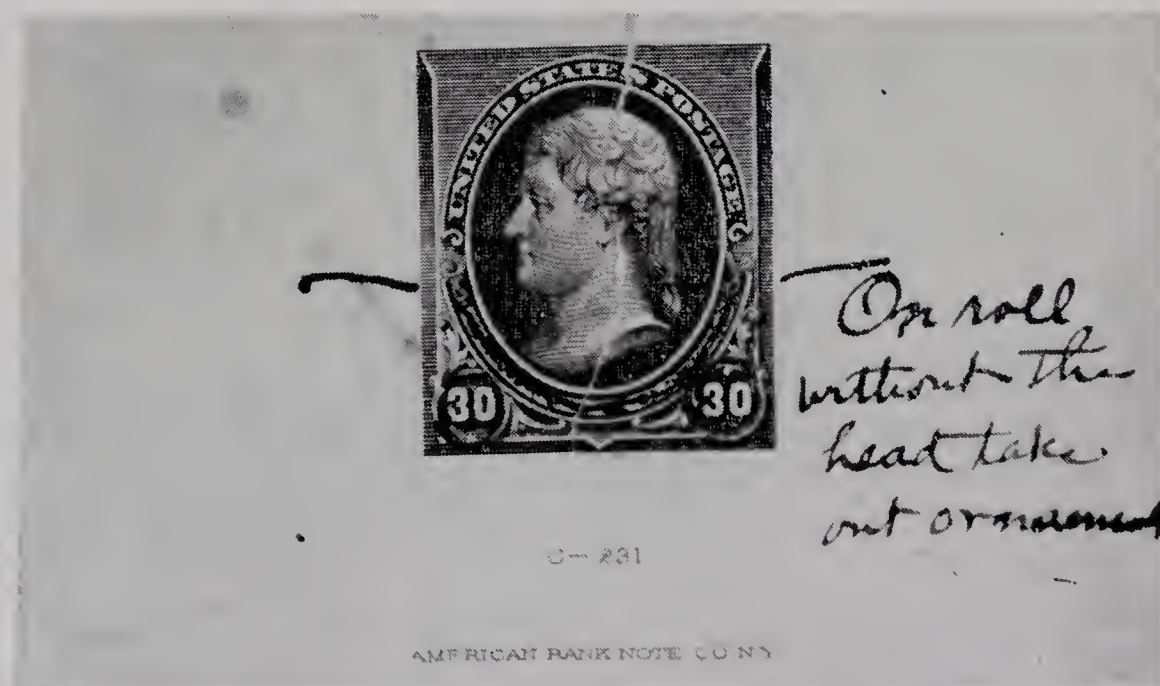 UNITED STATES POSTAGE
30 30
On roll
without the
head take
out ornament
C-231
AMERICAN BANK NOTE CO N Y